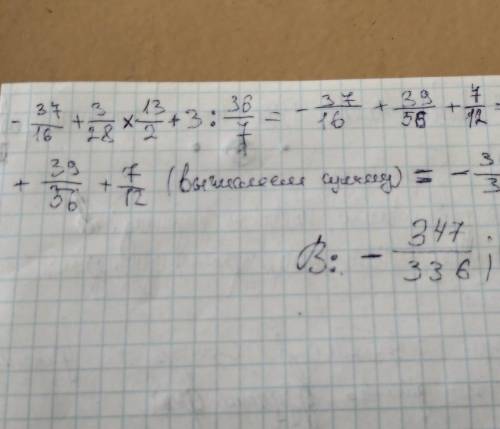 - 37/16 + 3/28 × 13/2 + 3 : 36/7 = - 37/16 + 39/56 + 7/12 =
+ 39/56 + 7/12 (вычисляем сумму) = - 3
В: - 347/336 ;